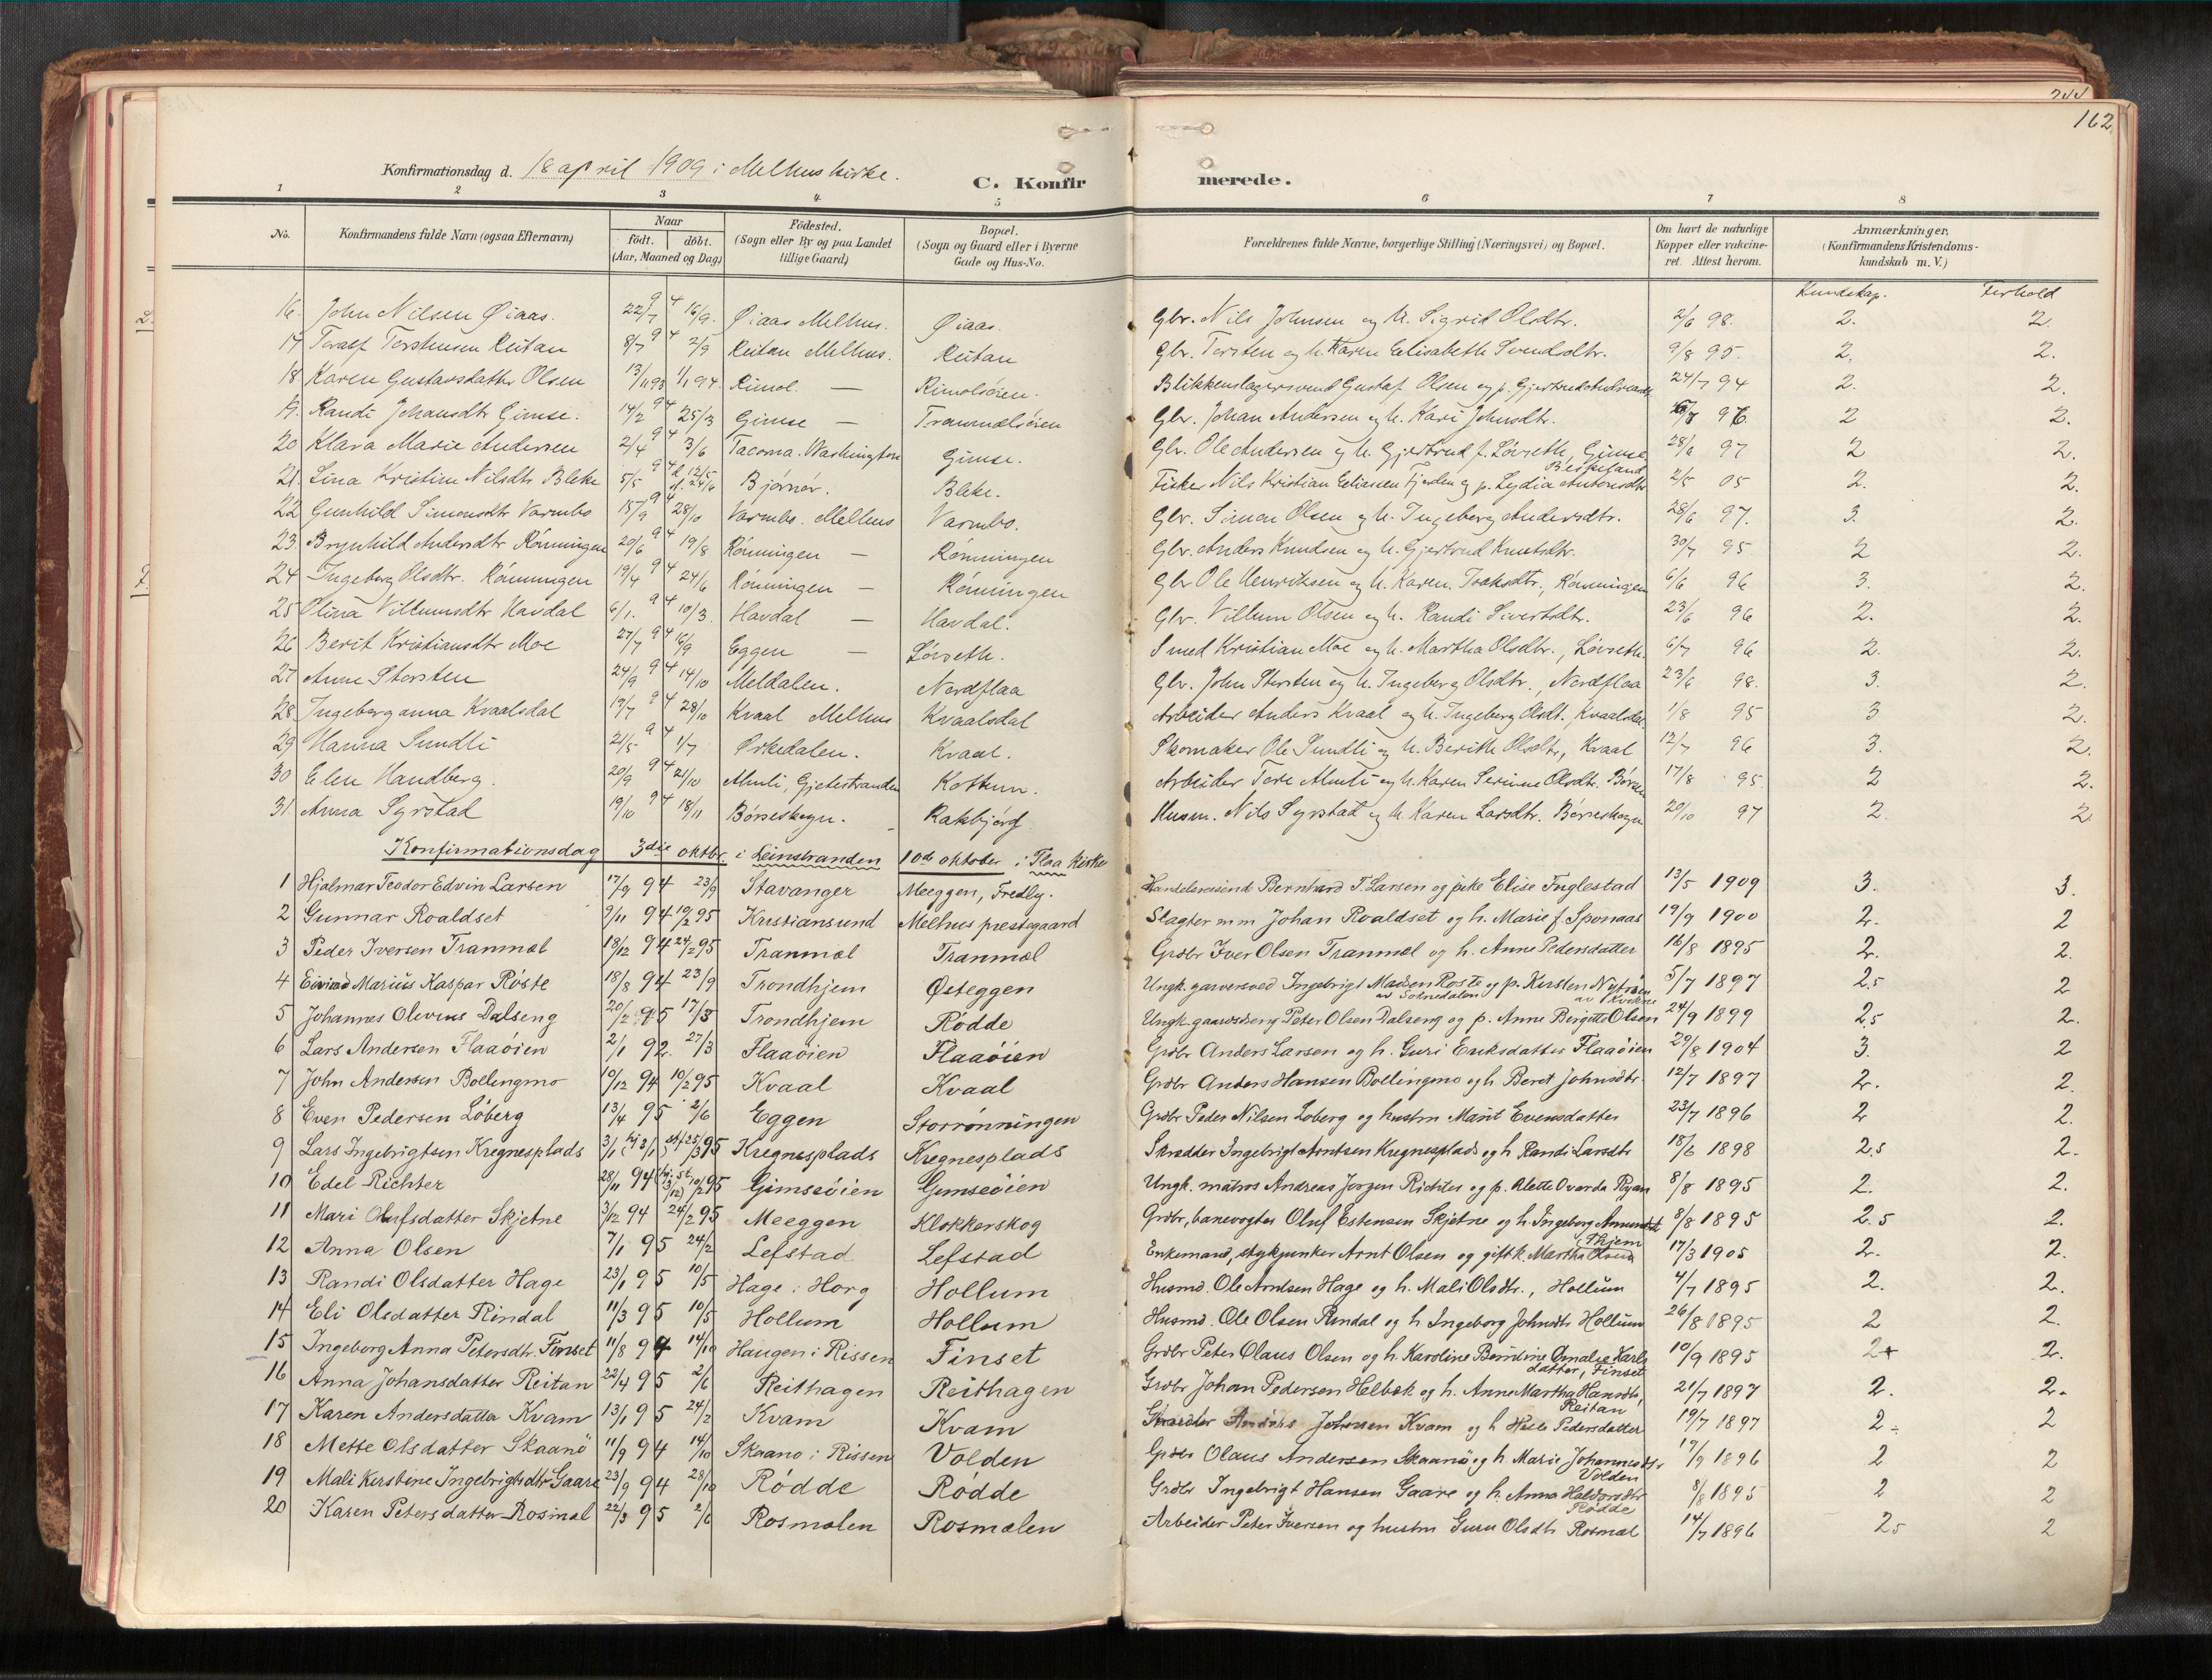 244
162
Konfirmationsdag d. 18 april 1909 i Melhus kirke.
C. Konfir merede.
1 2 3 4 5 6 7 8
No. Konfirmandens fulde Navn (ogsaa Efternavn) Naar födt. döbt. (Aar, Maaned og Dag) Födested. (Sogn eller By og paa Landet tillige Gaard) Bopæl. (Sogn og Gaard eller i Byerne Gade og Hus-No. Forældrenes fulde Navne, borgerlige Stilling (Næringsvei) og Bopæl. Om havt de naturlige Kopper eller vakcineret. Attest herom. Anmærkninger. (Konfirmandens Kristendomskundskab m. V.)
Kundskap. Forhold
16. John Nilsen Øiaas. 22/7 94 16/9. Øiaas Melhus. Øiaas. Gbr. Nils Johnsen og h. Sigrid Olsdtr. 2/6 98. 2. 2.
17 Toralf Torstensen Reitan 8/7 94 2/9 Reitan Melhus. Reitan Gbr. Torsten og h. Karen Elisabeth Svendsdtr. 9/8 95. 2. 2.
18 Karen Gustavsdatter Olsen 13/11 93 1/1 94. Rimol. — Rimolsøien. Blikkenslagersvend Gustaf Olsen og p. Gjertrud 24/7 94 2. 2.
19. Randi Johansdtr Gimse. 14/2 94 25/3 Gimse — Tranmælsøien Gbr. Johan Andersen og h. Kari Johnsdtr. 96 2 2.
20 Klara Marie Andersen 2/4 94 3/6 Tacoma. Washington Gimse. Gbr. Ole Andersen og h. Gjertrud f. Løvseth, Gimse 28/6 97 2 2.
21. Lina Kristine Nilsdtr Bleke 5/5 94 12/5 24/6 Bjørnør. Bleke. Fisker Nils Kristian Eliassen Fjorden og p. Lydia Antonsdtr Beskeland 2/5 05 2. 2.
22 Gunhild Simonsdtr Varmbo 15/9 94 28/10 Varmbo. Melhus Varmbo. Gbr. Simon Olsen og h. Ingeborg Andersdtr. 28/6 97. 3. 2.
23. Brynhild Andersdtr Rönningen 20/6 94 19/8 Rönningen — Rönningen Gbr. Anders Knudsen og h. Gjertrud Knutsdtr. 30/7 95 2 2.
24 Ingeborg Olsdtr. Rönningen 19/4 94 24/6 Rönningen — Rönningen Gbr Ole Henriksen og h. Karen Isaksdtr., Rönningen 6/6 96 3. 2.
25 Olina Villumsdtr Havdal 6/1. 94 10/3. Havdal — Havdal. Gbr. Villum Olsen og h. Randi Sivertsdtr. 23/6 96 2. 2.
26 Berit Kristiansdtr Moe 27/7 94 16/9 Eggen — Løvseth. Smed Kristian Moe og h. Martha Olsdtr., Løvseth. 6/7 96 2. 2.
27 Anne Storsten 24/9 94 14/10 Meldalen. Nordflaa Gbr. John Storsten og h. Ingeborg Olsdtr., Nordflaa 23/6 98. 3. 2.
28 Ingeborganna Kvaalsdal 19/7 94 28/10 Kvaal Melhus Kvaalsdal Arbeider Anders Kvaal og h. Ingeborg Olsdt. Kvaalsdal 1/8 95 3 2.
29 Hanna Sundli 21/5 94 1/7 Orkedalen. Kvaal. Skomaker Ole Sundli og h. Berith Olsdtr, Kvaal 12/7 96 3. 2.
30 Elen Handberg. 20/9 94 21/10 Almli, Gjetestranden Kottum. Arbeider Tore Almli og h. Karen Serine Olsdtr. Børsen 17/8 95 2 2.
31 Anna Syrstad 19/10 94 18/11 Børseskogn. Rakbjørg Husm. Nils Syrstad og h. Karen Larsdtr. Børseskogn 20/10 97 2. 2
Konfirmationsdag 3die oktbr. i Leinstranden 10de oktober i Flaa kirke
1 Hjalmar Teodor Edvin Larsen 17/9 94 23/9 Stavanger Meeggen, Fredly. Handelsreisende Bernhard T. Larsen og pike Elise Fuglestad 13/5 1909 3. 3.
2 Gunnar Roaldset 9/11 94 10/2 95 Kristiansund Melhus prestegaard Slagter m m Johan Roaldset og h. Marie f. Sponaas 19/9 1900 2. 2
3 Peder Iversen Tranmæl 18/12 94 24/2 95 Tranmæl Tranmæl Grdbr Iver Olsen Tranmæl og h. Anne Pedersdatter 16/8 1895 2. 2.
4 Eivind Marius Kaspar Röste 18/8 94 23/9 Trondhjem Østeggen Ungk. garversved Ingebrigt Madsen Roste av Soknedalen og p. Kirsten Nytrøen av Kvikne 5/7 1897 2,5 2
5 Johannes Olevius Dalseng 20/2 95 17/3 Trondhjem Rödde Ungk. gaardsdreng Peter Olsen Dalseng og p. Anne Birgitte Olsen 24/9 1899 2,5 2.
6 Lars Andersen Flaaöien 2/1 92. 27/3 Flaaöien Flaaöien Grdbr Anders Larsen og h. Guri Eriksdatter Flaaöien 29/8 1904 3. 2
7 John Andersen Bollingmo 10/12 94 10/2 95 Kvaal Kvaal Grdbr Anders Hansen Bollingmo og h. Beret Johnsdtr. 12/7 1897 2. 2.
8 Even Pedersen Löberg 13/4 95 2/6 Eggen Storrönningen Grdbr Peder Nilsen Loberg og hustru Marit Evensdatter 23/7 1896 2 2.
9 Lars Ingebrigtsen Kregnesplads 3/1 (hj 3/1) stf 25/3 95 Kregnesplads Kregnesplads Skrædder Ingebrigt Arntsen Kregnesplads og h Randi Larsdtr 18/6 1898 2,5 2.
10 Edel Richter 28/11 94 (hj. st 3/12) 10/2 95 Gimseöien Gimseöien Ungk. matros Andreas Jorgen Richter og p. Alette Ovarda Ryan 8/8 1895 2. 2.
11 Mari Olufsdatter Skjetne 3/12 94 24/2 95 Meeggen Klokkerskog Grdbr, banevogter Oluf Estensen Skjetne og h. Ingeborg 8/8 1895 2.5 2.
12 Anna Olsen 7/1 95 24/2 Lefstad Lefstad Enkemand, stykjunker Arnt Olsen og gift k. Martha Thjem 17/3 1905 2. 2.
13 Randi Olsdatter Hage 23/1 95 10/5 Hage i Horg Hollum Husmd. Ole Arntsen Hage og h. Mali Olsdtr., Hollum 4/7 1895 2. 2.
14 Eli Olsdatter Rindal 11/3 95 10/5 Hollum Hollum Husmd. Ole Olsen Rindal og h Ingeborg Johnsdtr Hollum 26/8 1895 2 2.
15 Ingeborg Anna Petersdtr. Finset 11/8 94 14/10 Haugen i Rissen Finset Grdbr Peter Olaus Olsen og h. Karoline Berndine Amalie Karls datter, Finset 10/9 1895 2+ 2.
16 Anna Johansdatter Reitan 22/4 95 2/6 Reithagen Reithagen Grdbr Johan Pedersen Helbæk og h. Anne Martha Hansdtr, Reitan 21/7 1897 2. 2.
17 Karen Andersdatter Kvam 13/1 95 24/2 Kvam Kvam Skrædder Anders Johnsen Kvam og h Pedersdatter 19/7 1897 2÷ 2
18 Mette Olsdatter Skaanö 11/9 94 14/10 Skaano i Rissen Volden Grdbr Olaus Andersen Skaanö og h Marie Johannesdtr Volden 17/9 1896 2 2
19 Mali Kirstine Ingebrigtsdtr Gaare 23/9 94 28/10 Rödde Rödde Grdbr Ingebrigt Hansen Gaare og h. Anna Haldorsdtr Rödde 8/8 1895 2 2
20 Karen Petersdatter Rosmæl 22/3 95 2/6 Rosmælen Rosmælen Arbeider Peter Iversen og hustru Guru Olsdtr Rosmæl 14/7 1896 2,5 2